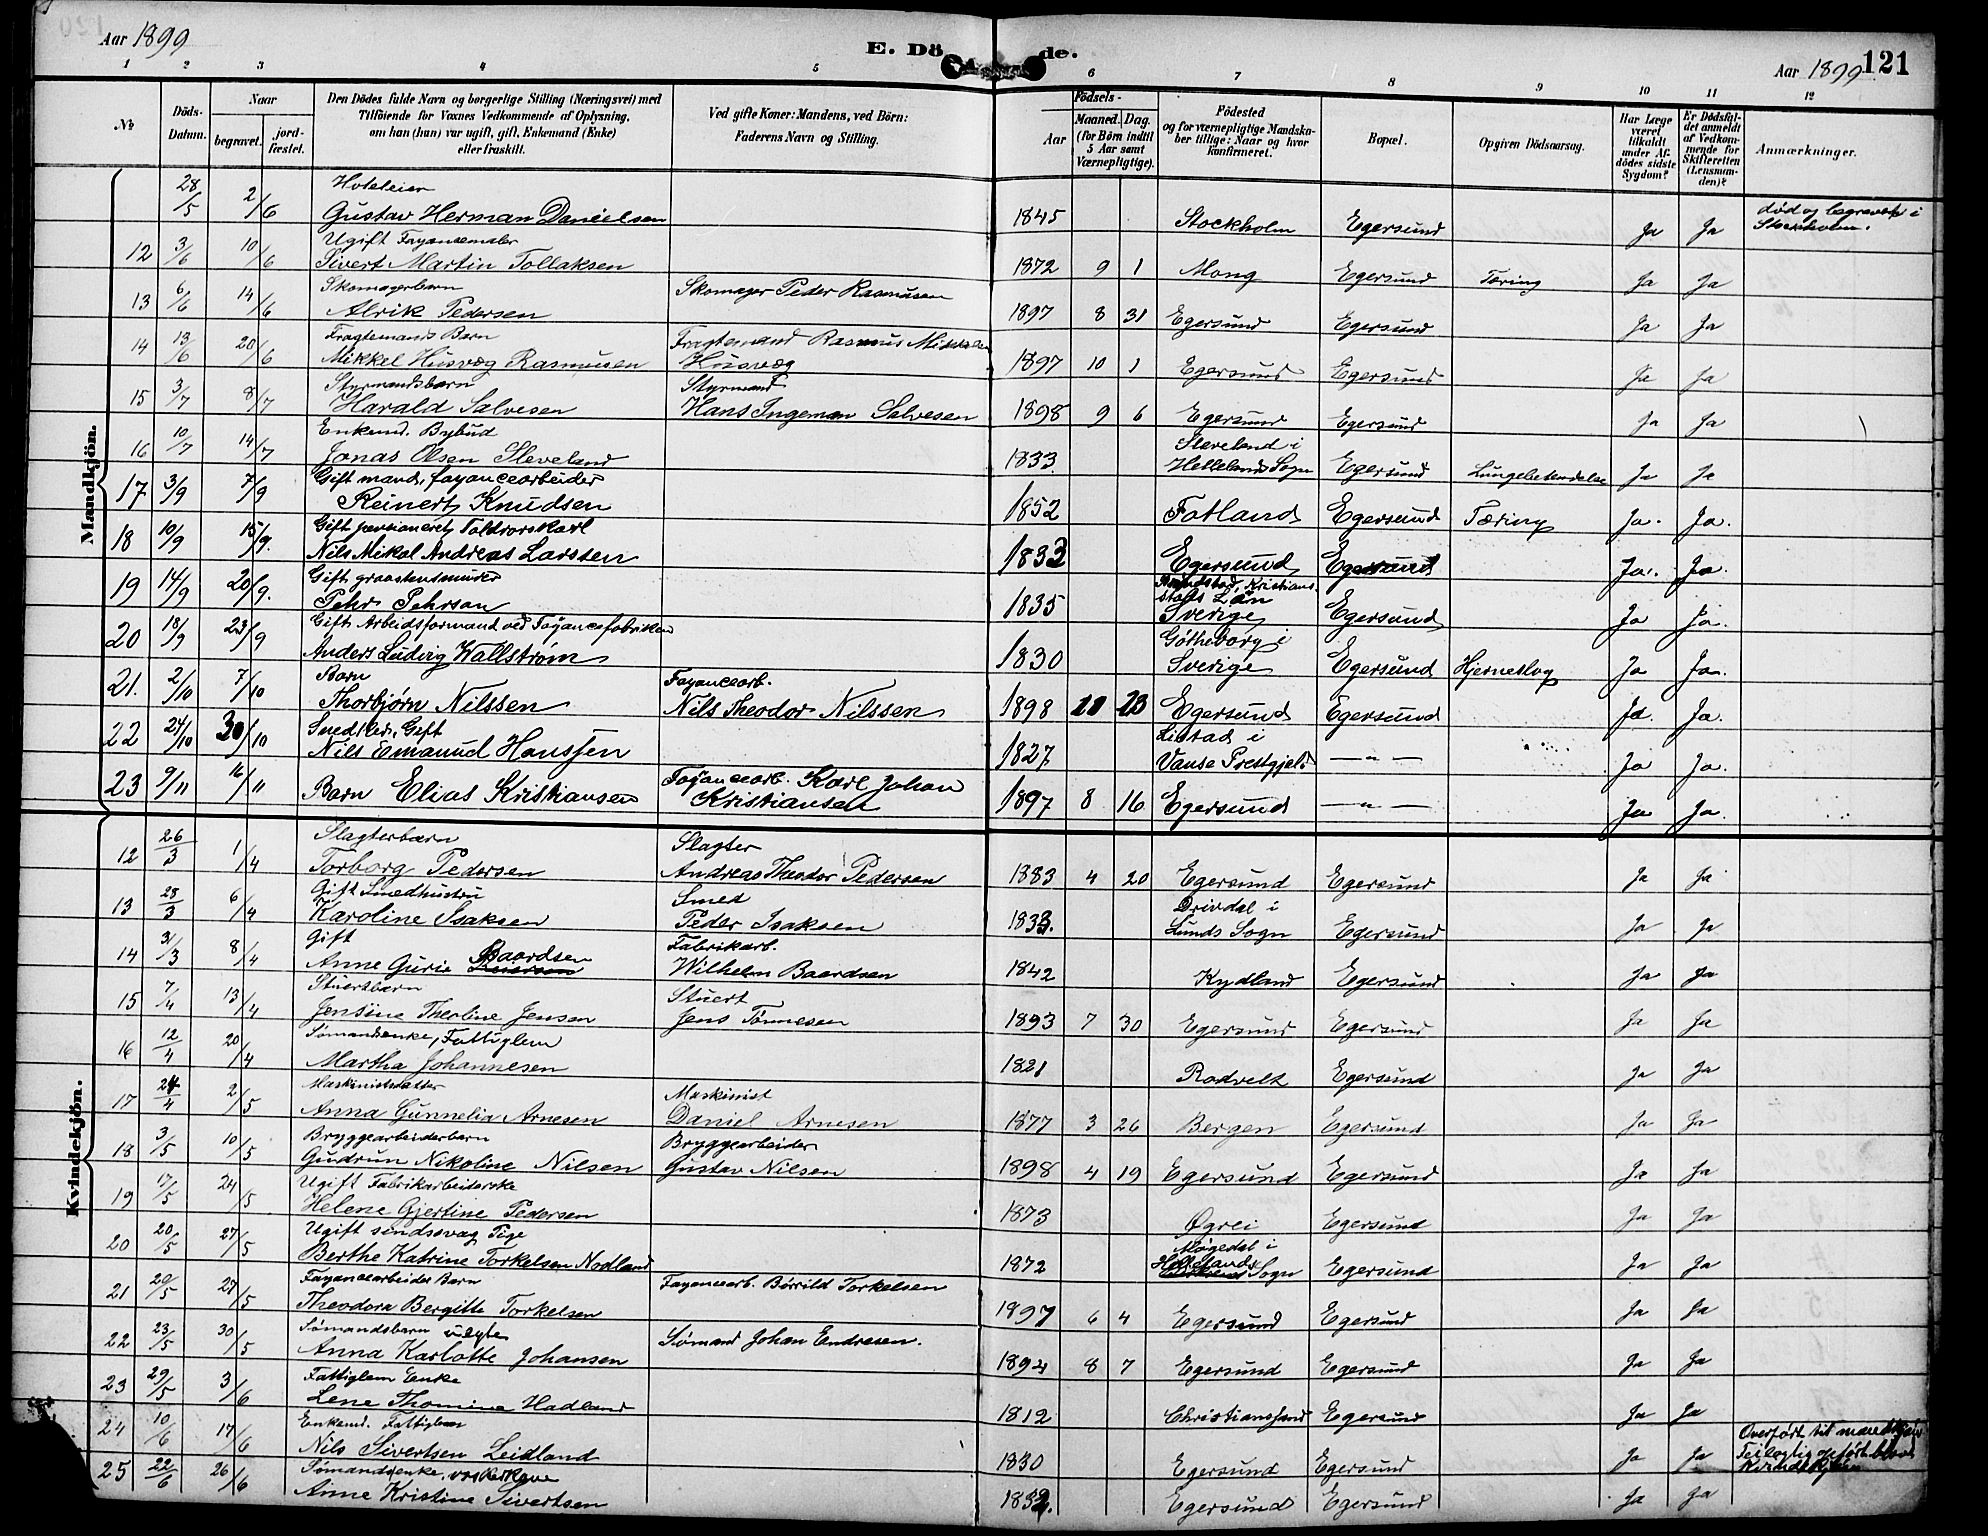 Aar 1899
E. Dö de.
Aar 1899 121
1 2 3 4 5 6 7 8 9 10 11 12
№
Döds-Datum.
Naar
begravet.
jord-fæstet.
Den Dödes fulde Navn og borgerlige Stilling (Næringsvei) med
Tilföiende for Voxnes Vedkommende af Oplysning,
om han (hun) var ugift, gift, Enkemand (Enke)
eller fraskilt.
Ved gifte Koner: Mandens, ved Börn:
Faderens Navn og Stilling.
Födsels-
Aar
Maaned. Dag.
(for Börn indtil
5 Aar samt
Værnepligtige).
Födested
og for værnepligtige Mandska-
ber tillige: Naar og hvor
konfirmeret.
Bopæl.
Opgiven Dödsaarsag.
Har Læge
været
tilkaldt
under Af-
dödes sidste
Sygdom?
Er Dödsfal-
det anmeldt
af Vedkom-
mende for
Skifteretten
(Lensman-
den)?
Anmærkninger.
Mandkjön.
28/5 2/6 Hoteleier
Gustav Herman Danielsen 1845 Stockholm Egersund Ja Ja død og begravet i Stockholm.
12 3/6 10/6 Ugift Fayancemaler
Sivert Martin Tollaksen 1872 9 1 Mong Egersund Tæring Ja Ja
13 6/6 14/6 Skomagerbarn
Alrik Pedersen Skomager Peder Rasmusen 1897 8 31 Egersund Egersund Ja Ja
14 13/6 20/6 Fragtemands Barn
Mikkel Husvæg Rasmusen Fragtemand Rasmus Mikkelsen
Husvæg 1897 10 1 Egersund Egersund Ja Ja
15 3/7 8/7 Styrmandsbarn
Harald Salvesen Styrmand
Hans Ingeman Salvesen 1898 9 6 Egersund Egersund Ja Ja
16 10/7 14/7 Enkemd. Bybud
Jonas Olsen Sleveland 1833. Sleveland i
Hellelands Sogn Egersund Lungebetændelse Ja Ja
17 3/9 7/9 Gift mand, fayancearbeider
Reinert Knudsen 1852 Fotland Egersund Tæring Ja. Ja.
18 10/9 15/9. Gift pensioneret Toldrorskarl
Nils Mikal Andreas Larssen 1833 Egersund Egersund Ja. Ja.
19 14/9 20/9. Gift graastensmurer
Pehr Pehrson 1835 Kristians
stads Län
Sverige Egersund Ja Ja.
20 18/9 23/9 Gift Arbeidsformand ved Fayancefabriken
Anders Ludvig Wallstrøm 1830 Gøtheborg i
Sverige Egersund Hjerneslag Ja Ja.
21. 2/10 7/10 Barn
Thorbjørn Nilssen Fayancearb.
Nils Theodor Nilssen 1898 11 23 Egersund Egersund Ja. Ja.
22 24/10 30/10 Gift
Nils Emanuel Hanssen 1827 Listad i
Vanse Prestgjeld — " — Ja Ja.
23 9/11 16/11 Barn Elias Kristiansen Fayancearb. Karl Johan
Kristiansen 1897 8 16 Egersund — " — Ja Ja.
Kvindekjön.
12 26/3 1/4 Slagterbarn
Torborg Pedersen Slagter
Andreas Theodor Pedersen 1883 4 20 Egersund Egersund Ja Ja
13 28/3 6/4 Gift Smedhustru
Karoline Isaksen Smed
Peder Isaksen 1833. Drivdal i
Lunds Sogn Egersund Ja Ja
14 31/3 8/4 Gift
Anne Gurie Baardsen Fabrikarb.
Wilhelm Baardsen 1842 Kydland Egersund Ja Ja
15 7/4 13/4 Stuertbarn
Jensine Theoline Jensen Stuert
Jens Tønnesen 1893 7 30 Egersund Egersund Ja Ja
16 12/4 20/4 Sømandsenke, Fattiglem
Martha Johannesen 1821 Rodvelt Egersund Ja Ja
17 24/4 2/5 Maskinistdatter
Anna Gunnelia Arnesen Maskinist
Daniel Arnesen 1877 3 26 Bergen Egersund Ja Ja
18 3/5 10/5 Bryggearbeiderbarn
Gudrun Nikoline Nilsen Bryggearbeider
Gustav Nilsen 1898 4 19 Egersund Egersund Ja Ja
19 17/5 24/5 Ugift Fabrikarbeiderske
Helene Gjertine Pedersen 1873 Øgrei Egersund Ja Ja
20 20/5 27/5 Ugift sindssvag Pige
Berthe Katrine Torkelsen Nodland 1872 Møgedal i
Hellelands Sogn Egersund Ja Ja
21 20/5 27/5 Fayancearbeider Barn
Theodora Bergitte Torkelsen Fayancearb. Børrild Torkelsen 1897 6 4 Egersund Egersund Ja Ja
22 23/5 30/5 Sømandsbarn uægte
Anna Karlotte Johansen Sømand Johan Endresen. 1894 8 7 Egersund Egersund Ja Ja
23 29/5 3/6 Fattiglem Enke
Lene Thomine Hadland 1812 Christianssand Egersund Ja Ja
24 10/6 17/6 Enkemd. Fattiglem
Nils Sivertsen Leidland 1830 Egersund Egersund Ja Ja Overført til mandkjøn
Feilagtig opført blandt
Kvindekjøn
25 22/6 26/6 Sømandsenke, vaskerkone
Anne Kristine Sivertsen 1832. Egersund Egersund Ja Ja